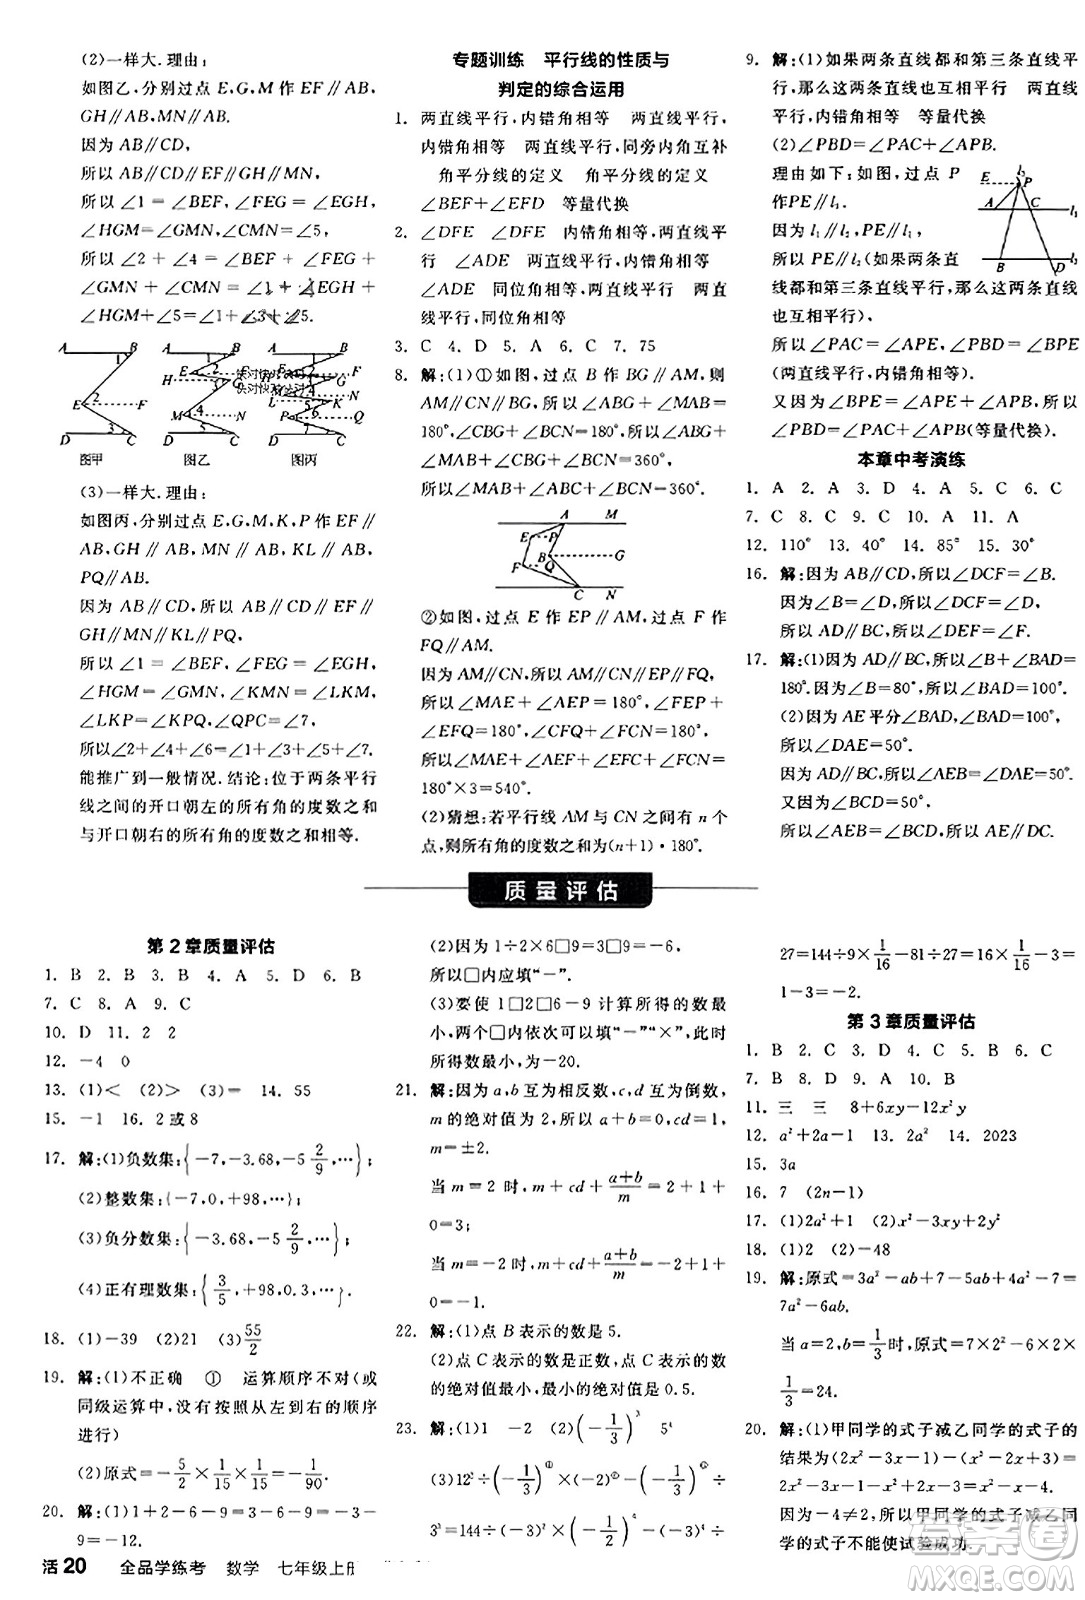 (2)一样大.理由:
如图乙,分别过点E,G,M作EF∥AB,GH
∥AB,MN∥AB.
因为AB∥CD,
所以AB∥CD∥EF∥GH∥MN,
所以∠1=∠BEF,∠FEG=∠EGH,
∠HGM=∠GMN,∠CMN=∠5,
所以∠2+∠4=∠BEF+∠FEG+
∠GMN+∠CMN=∠1+∠EGH+
∠HGM+∠5=∠1+∠3+∠5.
A B 1 E 2 F D 3 C
A B 1 E 2 F H 3 G M 4 N D 5 C
A B
图甲 图乙 图丙
(3)一样大.理由:
如图丙,分别过点E,G,M,K,P作EF∥
AB,GH∥AB,MN∥AB,KL∥AB,
PQ∥AB.
因为AB∥CD,所以AB∥CD∥EF∥
GH∥MN∥KL∥PQ,
所以∠1=∠BEF,∠FEG=∠EGH,
∠HGM=∠GMN,∠KMN=∠LKM,
∠LKP=∠KPQ,∠QPC=∠7,
所以∠2+∠4+∠6=∠1+∠3+∠5+∠7.
能推广到一般情况.结论:位于两条平行
线之间的开口朝左的所有角的度数之和
与开口朝右的所有角的度数之和相等.
专题训练 平行线的性质与
判定的综合运用
1. 两直线平行,内错角相等 两直线平行,
内错角相等 两直线平行,同旁内角互补
角平分线的定义 角平分线的定义
∠BEF+∠EFD 等量代换
2. ∠DFE ∠DFE 内错角相等,两直线平
行 ∠ADE 两直线平行,内错角相等
∠ADE 同位角相等,两直线平行 两直
线平行,同位角相等
3. C 4. D 5. A 6. C 7. 75
8. 解:(1)①如图,过点B作BG∥AM,则
AM∥BG∥CN,所以∠ABG+∠MAB=
180°,∠CBG+∠BCN=180°,所以
∠MAB+∠ABG+∠CBG+∠BCN=360°,
所以∠MAB+∠ABC+∠BCN=360°.
A M E P B G F Q C N
②如图,过点E作EP∥AM,过点F作
FQ∥AM.
因为AM∥CN,所以AM∥EP∥FQ,
所以∠MAE+∠AEP=180°,∠FEP+
∠EFQ=180°,∠CFQ+∠FCN=180°,
所以∠MAE+∠AEF+∠EFC+∠FCN=
180°×3=540°.
(2)猜想:若平行线AM与CN之间有n个
点,则所有角的度数之和为(n+1)·180°.
9. 解:(1)如果两条直线都和第三条直线平
行,那么这两条直线也互相平行 两直线平
行,内错角相等 等量代换
(2)∠PBD=∠PAC+∠APB.
理由如下:如图,过点P
作PE∥l₁.
因为l₁∥l₂,PE∥l₁,
所以PE∥l₂(如果两条直
线都和第三条直线平行,那么这两条直线
也互相平行),
所以∠PAC=∠APE,∠PBD=∠BPE
(两直线平行,内错角相等).
又因为∠BPE=∠APE+∠APB,所以
∠PBD=∠PAC+∠APB(等量代换).
E P l₃ A C l₁ B D l₂
本章中考演练
1. A 2. A 3. D 4. A 5. C 6. C
7. C 8. C 9. C 10. A 11. A
12. 110° 13. 40° 14. 85° 15. 30°
16. 解:因为AB∥CD,所以∠DCF=∠B.
因为∠B=∠D,所以∠DCF=∠D.
所以AD∥BC,所以∠DEF=∠F.
17. 解:(1)因为AD∥BC,所以∠B+∠BAD=
180°.因为∠B=80°,所以∠BAD=100°.
(2)因为AE平分∠BAD,∠BAD=100°,
所以∠DAE=50°.
因为AD∥BC,所以∠AEB=∠DAE=50°.
又因为∠BCD=50°,
所以∠AEB=∠BCD,所以AE∥DC.
质量评估
第2章质量评估
1. B 2. B 3. B 4. A 5. D 6. B
7. C 8. A 9. C
10. D 11. 2 2
12. -4 0
13. (1)< (2)> (3)= 14. 55
15. -1 16. 2或8
17. 解:(1)负数集:{-7,-3.68,-5 2/9,…};
(2)整数集:{-7,0,+98,…};
(3)负分数集:{-3.68,-5 2/9,…};
(4)正有理数集:{3/5,+98,0.3,…}
18. (1)-39 (2)21 (3)55/2
19. 解:(1)不正确 ① 运算顺序不对(或
同级运算中,没有按照从左到右的顺序
进行)
(2)原式=-5/2×1/15×1/15=-1/90.
20. 解:(1)1+2-6-9=3-6-9=-3-
9=-12.
(2)因为1÷2×6□9=3□9=-6,
所以□内应填“-”.
(3)要使1□2□6-9计算所得的数最
小,两个□内依次可以填“-”“×”,此时
所得的数最小,为-20.
21. 解:因为a,b互为相反数,c,d互为倒数,
m的绝对值为2,所以a+b=0,cd=1,
m=±2.
当m=2时,m+cd+(a+b)/m=2+1+
0=3;
当m=-2时,m+cd+(a+b)/m=-2+1+
0=-1.
22. 解:(1)点B表示的数是5.
(2)点C表示的数是-0.5或0.5,它们
的绝对值是0.5.
23. 解:(1)1 -2 (2)(-1/3)³ 5⁴
27=144÷9×1/16-81÷27=16×1/16-3=
1-3=-2.
第3章质量评估
1. B 2. C 3. D 4. D 5. B 6. C
7. B 8. D 9. A 10. C
11. 三 三 8+6xy-12x²y
12. a²+2a-1 13. 2a² 14. 2023
15. 3a
16. 7 (2n-1)
17. (1)2a²+1 (2)x²-3xy+2y²
18. (1)2 (2)-48
19. 解:原式=3a²-ab+7-5ab+4a²-7=
7a²-6ab.
当a=2,b=1/3时,原式=7×2²-6×2×
1/3=24.
20. 解:(1)甲同学的式子减乙同学的式子的
结果为(2x²-3x-1)-(x²-2x+3)=
2x²-3x-1-x²+2x-3=x²-x-4.
因为-4≠2,所以甲同学的式子减乙同
学的式子不能使试验成功.
活20 全品学练考 数学 七年级上册